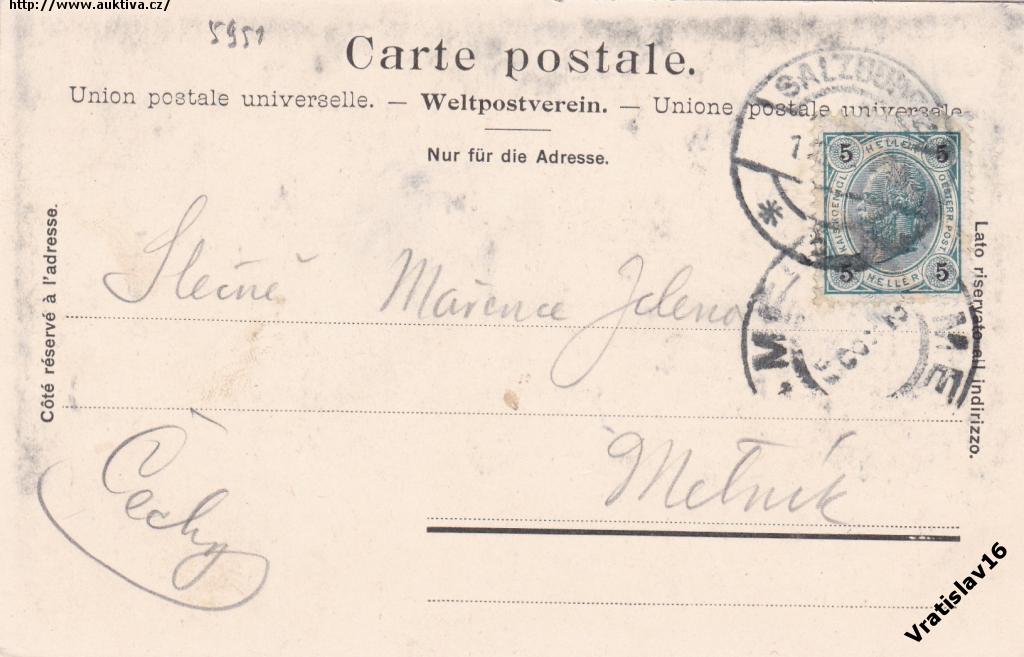 http://www.auktiva.cz/
5951
Carte postale.
Union postale universelle. — Weltpostverein. — Unione postale universale
Nur für die Adresse.
SALZBURG
5 HELLER 5
KAIS. KOENIGL. OESTERR. POST
5 HELLER 5
Côté réservé à l'adresse.
Lato riservato all indirizzo.
Slečně Mařence Jeleno
Mělník
Čechy
Vratislav16